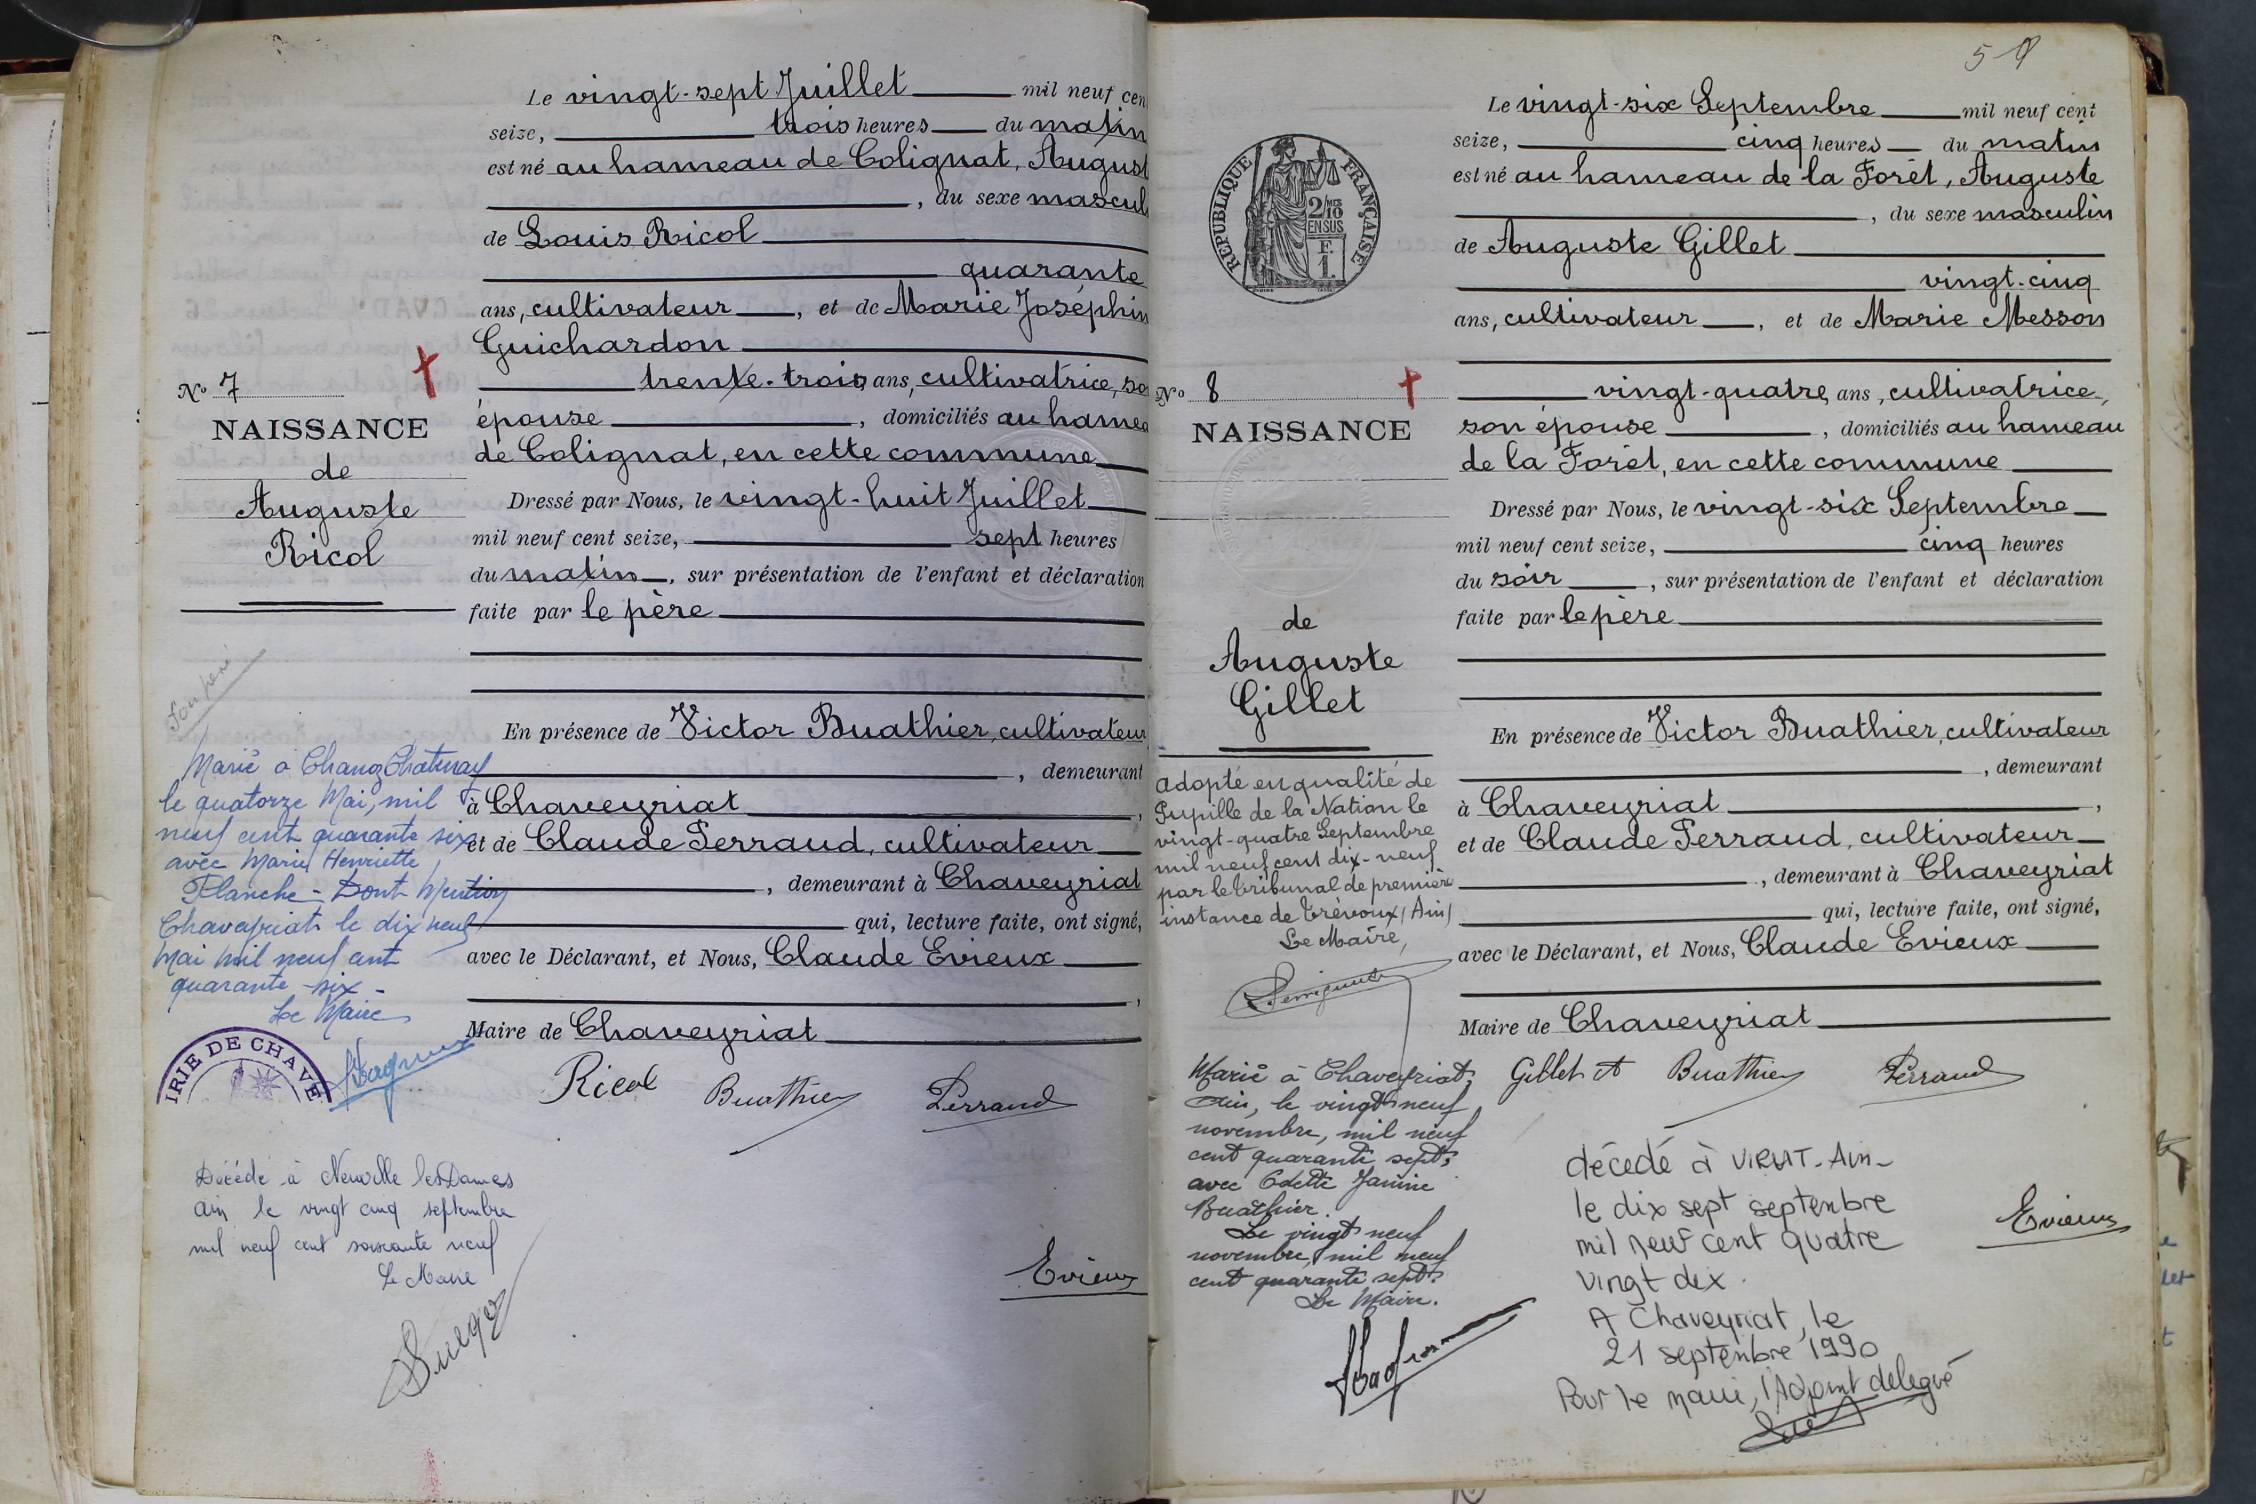 Le vingt-sept Juillet mil neuf cen
seize, trois heures du matin
est né au hameau de Colignat, August
, du sexe mascul
de Louis Ricol
quarante
ans, cultivateur, et de Marie Joséphin
Guichardon
trente-trois ans, cultivatrice, so
épouse, domiciliés au hamea
de Colignat, en cette commune
Dressé par Nous, le vingt-huit Juillet
mil neuf cent seize, sept heures
du matin, sur présentation de l'enfant et déclaration
faite par le père
En présence de Victor Buathier, cultivateur
, demeurant
à Chaveyriat,
et de Claude Perraud, cultivateur
, demeurant à Chaveyriat
qui, lecture faite, ont signé,
avec le Déclarant, et Nous, Claude Evieux
,
Maire de Chaveyriat
Ricol Buathier Perraud
Evieux
No 7
NAISSANCE
de
Auguste
Ricol
Marié à Chanoz Chatenay
le quatorze Mai, mil
neuf cent quarante six
avec Marie Henriette
Planche - Dont Mention
Chaveyriat le dix neuf
Mai mil neuf cent
quarante six -
Le Maire
IRIE DE CHAVE
Décédé à Neuville les Dames
Ain le vingt cinq septembre
mil neuf cent soixante neuf
Le Maire
5
Le vingt-six Septembre mil neuf cent
seize, cinq heures du matin
est né au hameau de la Forêt, Auguste
, du sexe masculin
de Auguste Gillet
vingt-cinq
ans, cultivateur, et de Marie Messon
vingt-quatre ans, cultivatrice,
son épouse, domiciliés au hameau
de la Forêt, en cette commune
Dressé par Nous, le vingt-six Septembre
mil neuf cent seize, cinq heures
du soir, sur présentation de l'enfant et déclaration
faite par le père
En présence de Victor Buathier, cultivateur
, demeurant
à Chaveyriat,
et de Claude Perraud, cultivateur
, demeurant à Chaveyriat
qui, lecture faite, ont signé,
avec le Déclarant, et Nous, Claude Evieux
Maire de Chaveyriat
Gillet A Buathier Perraud
Evieux
RÉPUBLIQUE FRANÇAISE
2/10 MES
EN SUS
F.
1.
No 8
NAISSANCE
de
Auguste
Gillet
Adopté en qualité de
Pupille de la Nation le
vingt-quatre Septembre
mil neuf cent dix-neuf
par le tribunal de première
instance de Trévoux (Ain)
Le Maire,
Marié à Chaveyriat,
Ain, le vingt neuf
novembre, mil neuf
cent quarante sept,
avec Odette Janine
Buathier.
Le vingt neuf
novembre, mil neuf
cent quarante sept.
Le Maire.
décédé à VIRIAT - Ain -
le dix sept septembre
mil neuf cent quatre
vingt dix.
A Chaveyriat, le
21 septembre 1990
Pour le maire, l'Adjoint délégué